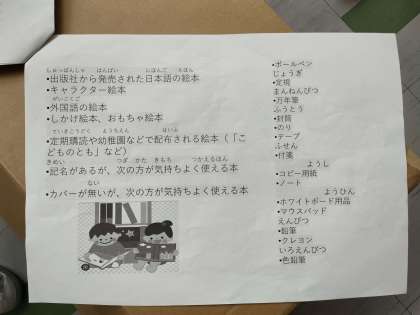 しゅっぱんしゃ はつばい にほんご えほん
•出版社から発売された日本語の絵本
•キャラクター絵本
がいこくご
•外国語の絵本
•しかけ絵本、おもちゃ絵本
ていきこうどく ようちえん はいふ
•定期購読や幼稚園などで配布される絵本（「こ
どものとも」など）
きめい つぎ かた きもち つかえるほん
•記名があるが、次の方が気持ちよく使える本
ない
•カバーが無いが、次の方が気持ちよく使える本
•ボールペン
じょうぎ
•定規
まんねんひつ
•万年筆
ふうとう
•封筒
•のり
•テープ
ふせん
•付箋
ようし
•コピー用紙
•ノート
ようひん
•ホワイトボード用品
•マウスパッド
えんぴつ
•鉛筆
•クレヨン
いろえんぴつ
•色鉛筆